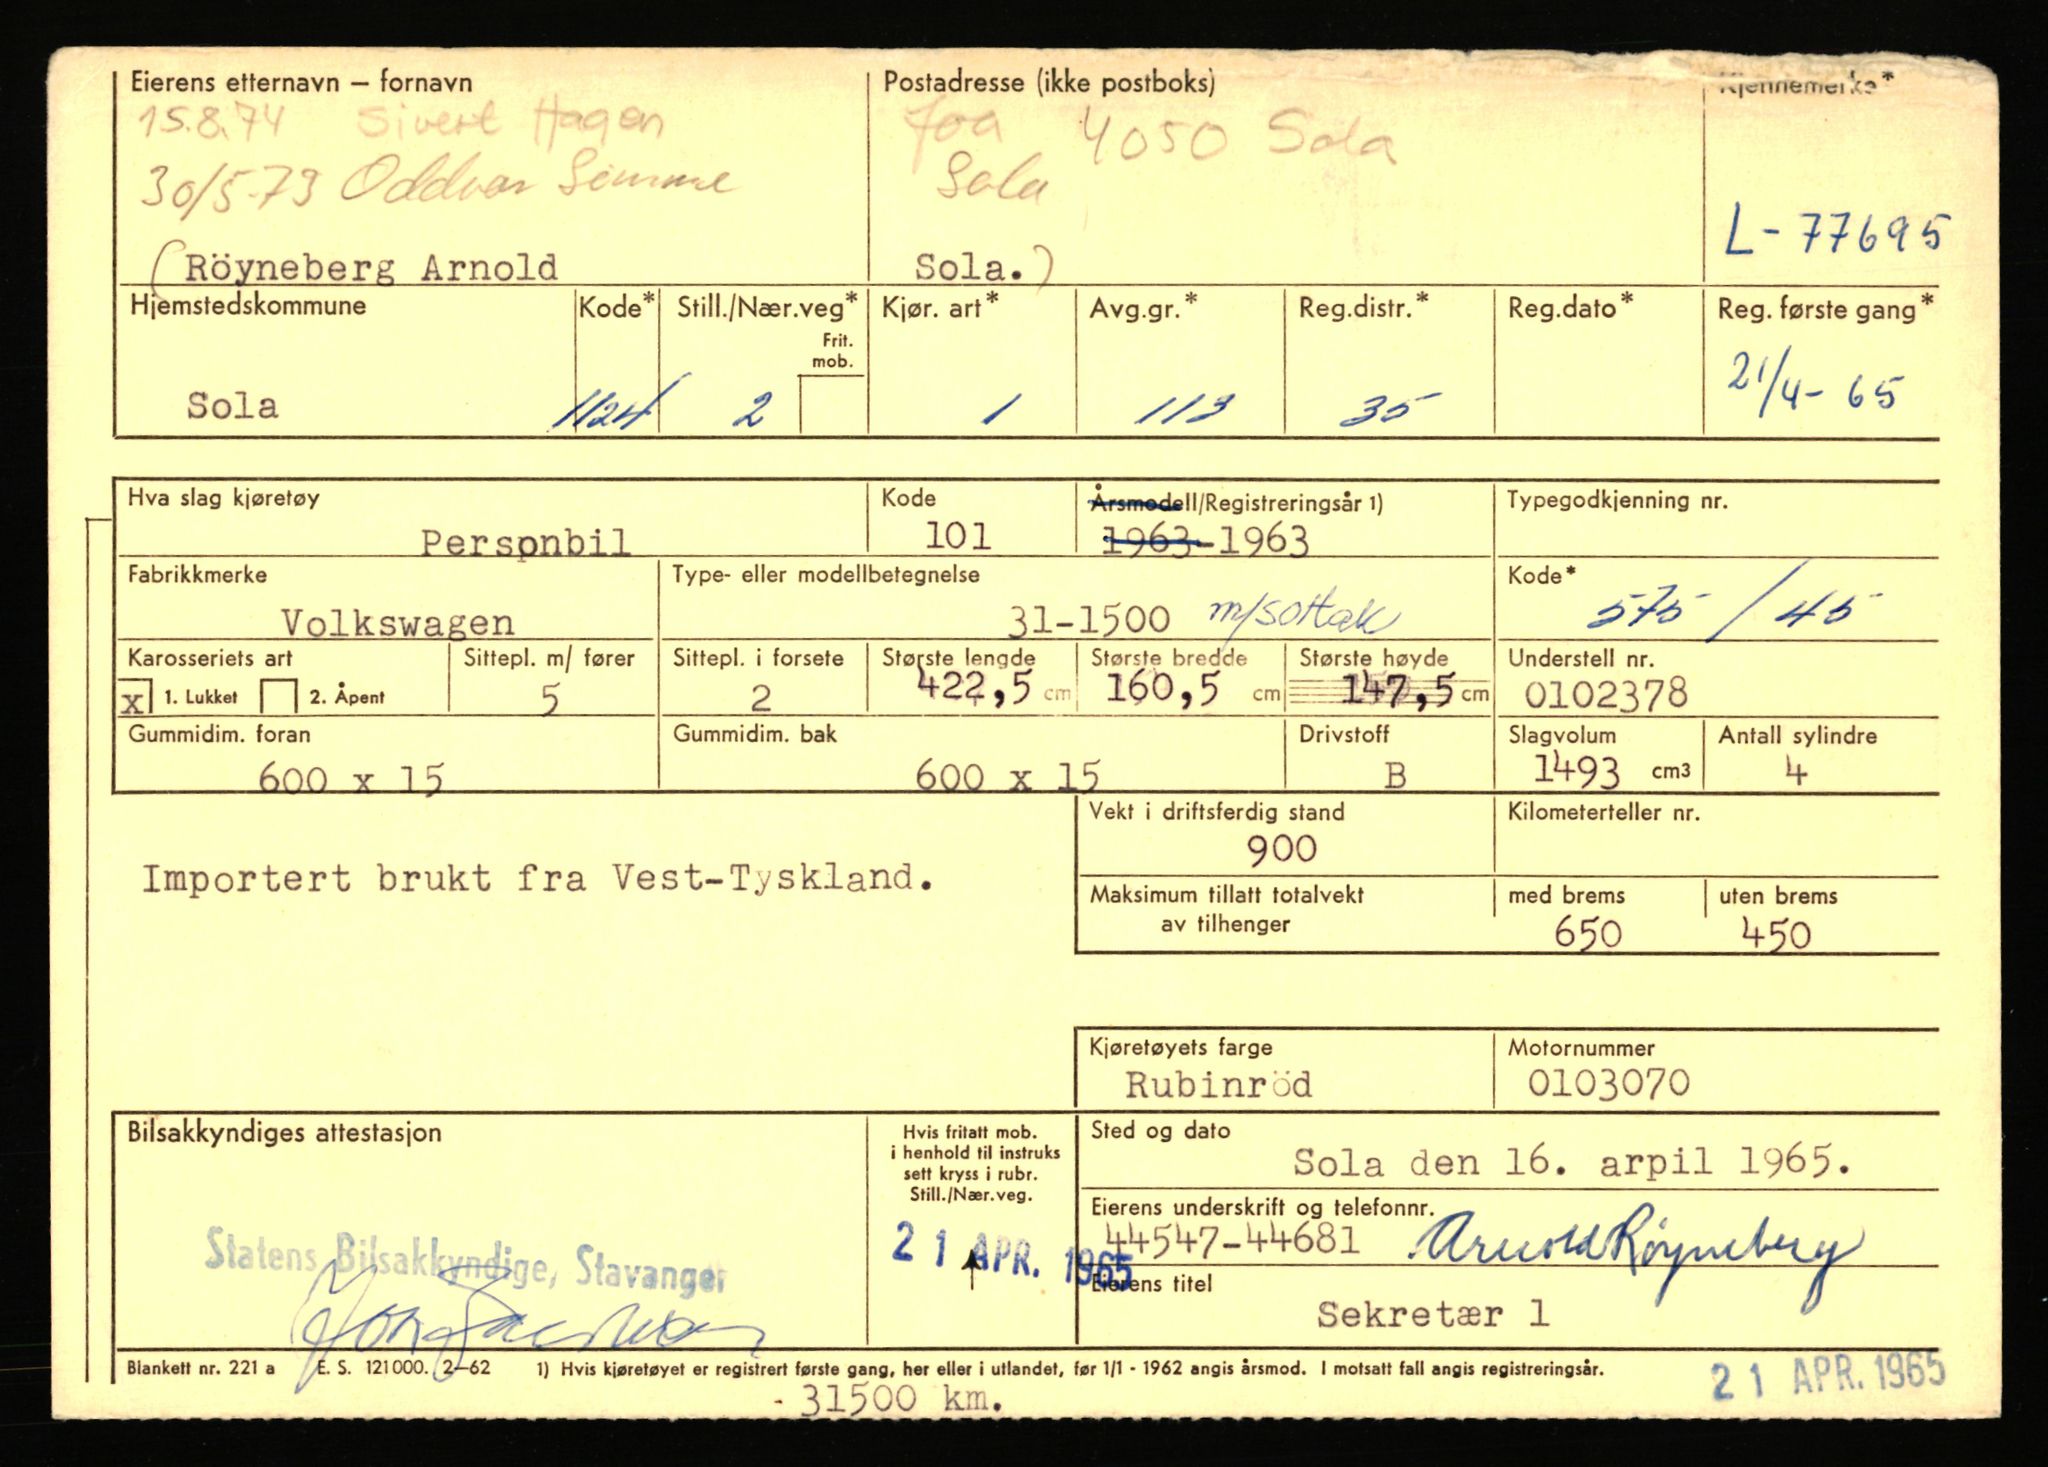 Eierens etternavn – fornavn Postadresse (ikke postboks) Kjennemerke*
15.8.74 Sivert Hagen Joa 4050 Sola
30/5-73 Oddvar Sola
L-77695
(Röyneberg Arnold Sola.)
Hjemstedskommune Kode* Still./Nær.veg* Kjør. art* Avg.gr.* Reg.distr.* Reg.dato* Reg. første gang*
Frit.
mob.
Sola 1124 2 1 113 35 21/4-65
Hva slag kjøretøy Kode Årsmodell/Registreringsår 1) Typegodkjenning nr.
Personbil 101 1963-1963
Fabrikkmerke Type- eller modellbetegnelse Kode*
Volkswagen 31-1500 m/soltak 575/45
Karosseriets art Sittepl. m/ fører Sittepl. i forsete Største lengde Største bredde Største høyde Understell nr.
x 1. Lukket 2. Åpent 5 2 422,5 cm 160,5 cm 147,5 cm 0102378
Gummidim. foran Gummidim. bak Drivstoff Slagvolum Antall sylindre
600 x 15 600 x 15 B 1493 cm3 4
Vekt i driftsferdig stand Kilometerteller nr.
900
Importert brukt fra Vest-Tyskland.
Maksimum tillatt totalvekt med brems uten brems
av tilhenger 650 450
Kjøretøyets farge Motornummer
Rubinröd 0103070
Bilsakkyndiges attestasjon Hvis fritatt mob. Sted og dato
i henhold til instruks
sett kryss i rubr. Sola den 16. arpil 1965.
Still./Nær.veg.
Eierens underskrift og telefonnr.
Statens Bilsakkyndige, Stavanger 21 APR. 1965 44547-44681 Arnold Røyneberg
Eierens titel
Sekretær 1
Blankett nr. 221 a E. S. 121000. 2–62 1) Hvis kjøretøyet er registrert første gang, her eller i utlandet, før 1/1 - 1962 angis årsmod. I motsatt fall angis registreringsår.
21 APR. 1965
31500 km.